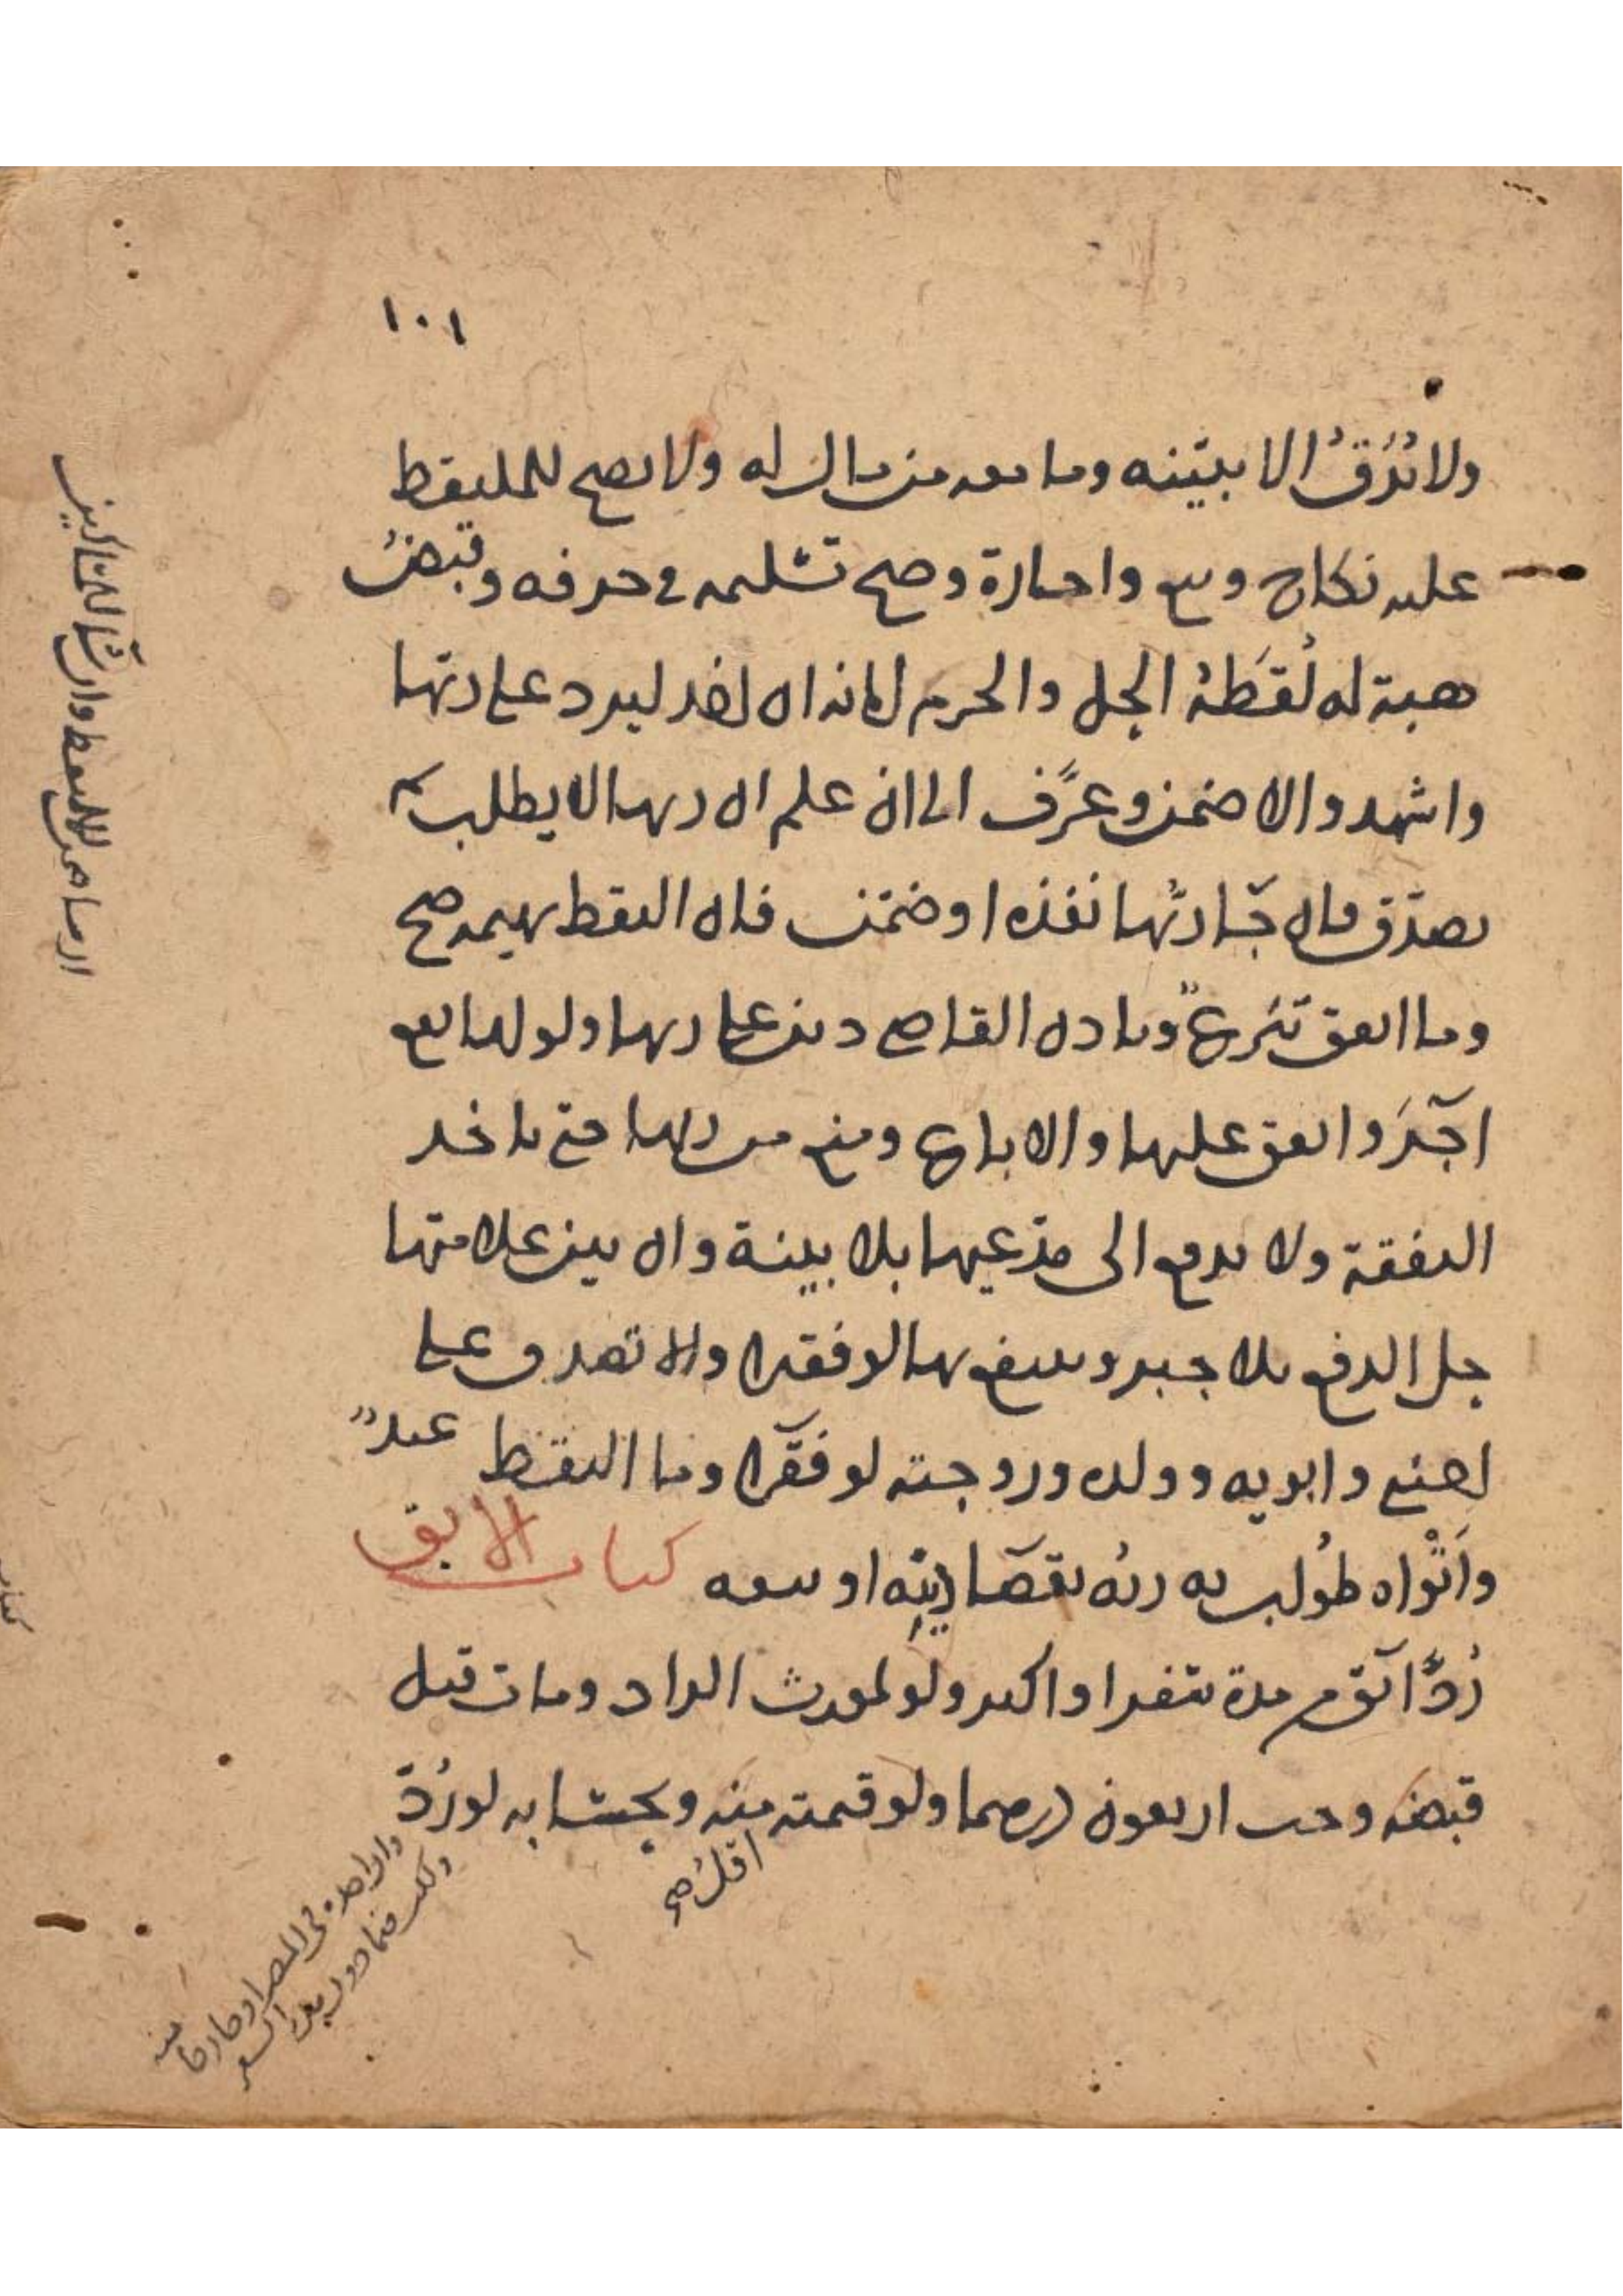 ١٠١
ولا يُرَقُّ الا ببيّنه وما معه من مال له ولا يصح للملتقط
عليه نكاح وبيع واجارة وصح تسليمه في حرفه وقبض
هبة له لُقَطَة الحل والحرم امانة ان اخذ ليرد على ربها
واشهد والا ضمن وعرَّف الى ان علم ان ربها لا يطلب ثم
تصدّق فان جآء ربُّها نفذه او ضمن فان التقط بهيمة صح
وما انفق تبرعٌ وباذن القاضي دين على ربها ولو لها نفع
آجَر وانفق عليها والا باع ومنع من ربها حتى ياخذ
النفقة ولا يدفع الى مدّعيها بلا بينة وان بين علامتها
حل الدفع بلا جبر وينتفع بها لو فقيرا والا تصدق على
اجنبي وابويه وولده وزوجته لو فقرآ وما التقط عبدٌ
وأتْواه طُولب به ربُّه بقضآ دَينِه او بيعه كتاب الابق
رُدَّ آبق من مدة سفر او اكثر ولو لمورث الراد ومات قبل
قبضه وجب اربعون درهما ولو قيمته منه ويحتسب به لو رُدّ
اقل صح